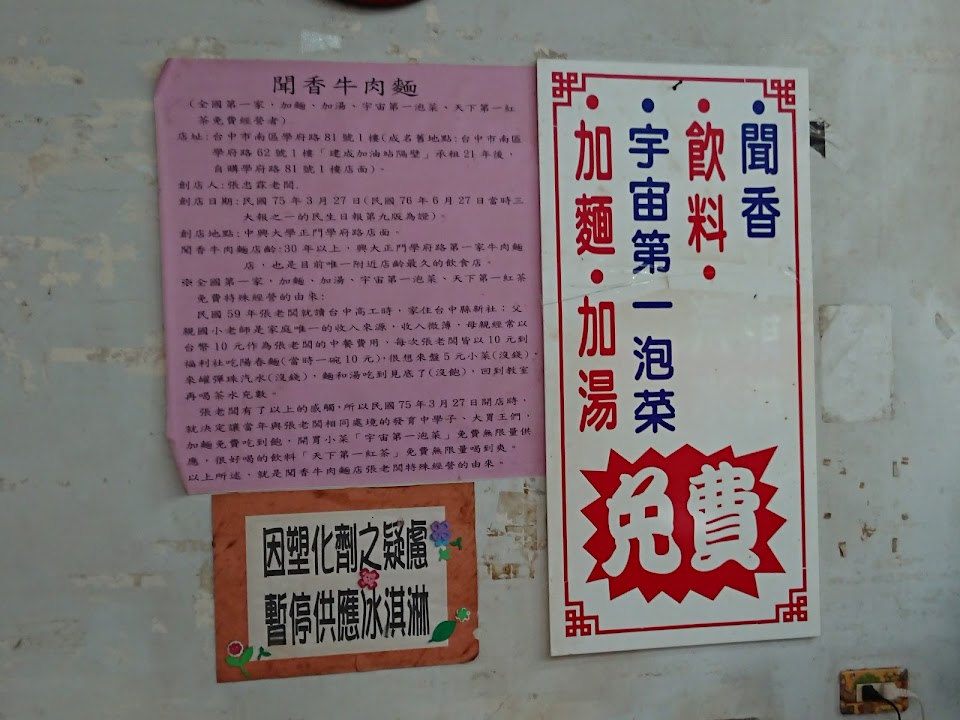 聞香牛肉麵
(全國第一家，加麵、加湯、宇宙第一泡菜、天下第一紅
茶免費經營者)
店址：台中市南區學府路81號1樓(成名舊地點：台中市南區
學府路62號1樓「建成加油站隔壁」承租21年後，
自購學府路81號1樓店面)。
創店人：張忠霖老闆。
創店日期：民國75年3月27日(民國76年6月27日當時三
大報之一的民生日報第九版為證)。
創店地點：中興大學正門學府路店面。
聞香牛肉麵店齡：30年以上，興大正門學府路第一家牛肉麵
店，也是目前唯一附近店齡最久的飲食店。
※全國第一家，加麵、加湯、宇宙第一泡菜、天下第一紅茶
免費特殊經營的由來：
民國59年張老闆就讀台中高工時，家住台中縣新社；父
親國小老師是家庭唯一的收入來源，收入微薄，母親經常以
台幣10元作為張老闆的中餐費用，每次張老闆皆以10元到
福利社吃陽春麵(當時一碗10元)，很想來盤5元小菜(沒錢)、
來罐彈珠汽水(沒錢)，麵和湯吃到見底了(沒飽)，回到教室
再喝茶水充數。
張老闆有了以上的感觸，所以民國75年3月27日開店時，
就決定讓當年與張老闆相同處境的發育中學子、大胃王們，
加麵免費吃到飽，開胃小菜「宇宙第一泡菜」免費無限量供
應，很好喝的飲料「天下第一紅茶」免費無限量喝到爽。
以上所述，就是聞香牛肉麵店張老闆特殊經營的由來。
•聞香
•飲料•
•宇宙第一泡菜
•加麵•加湯
免費
因塑化劑之疑慮
暫停供應冰淇淋